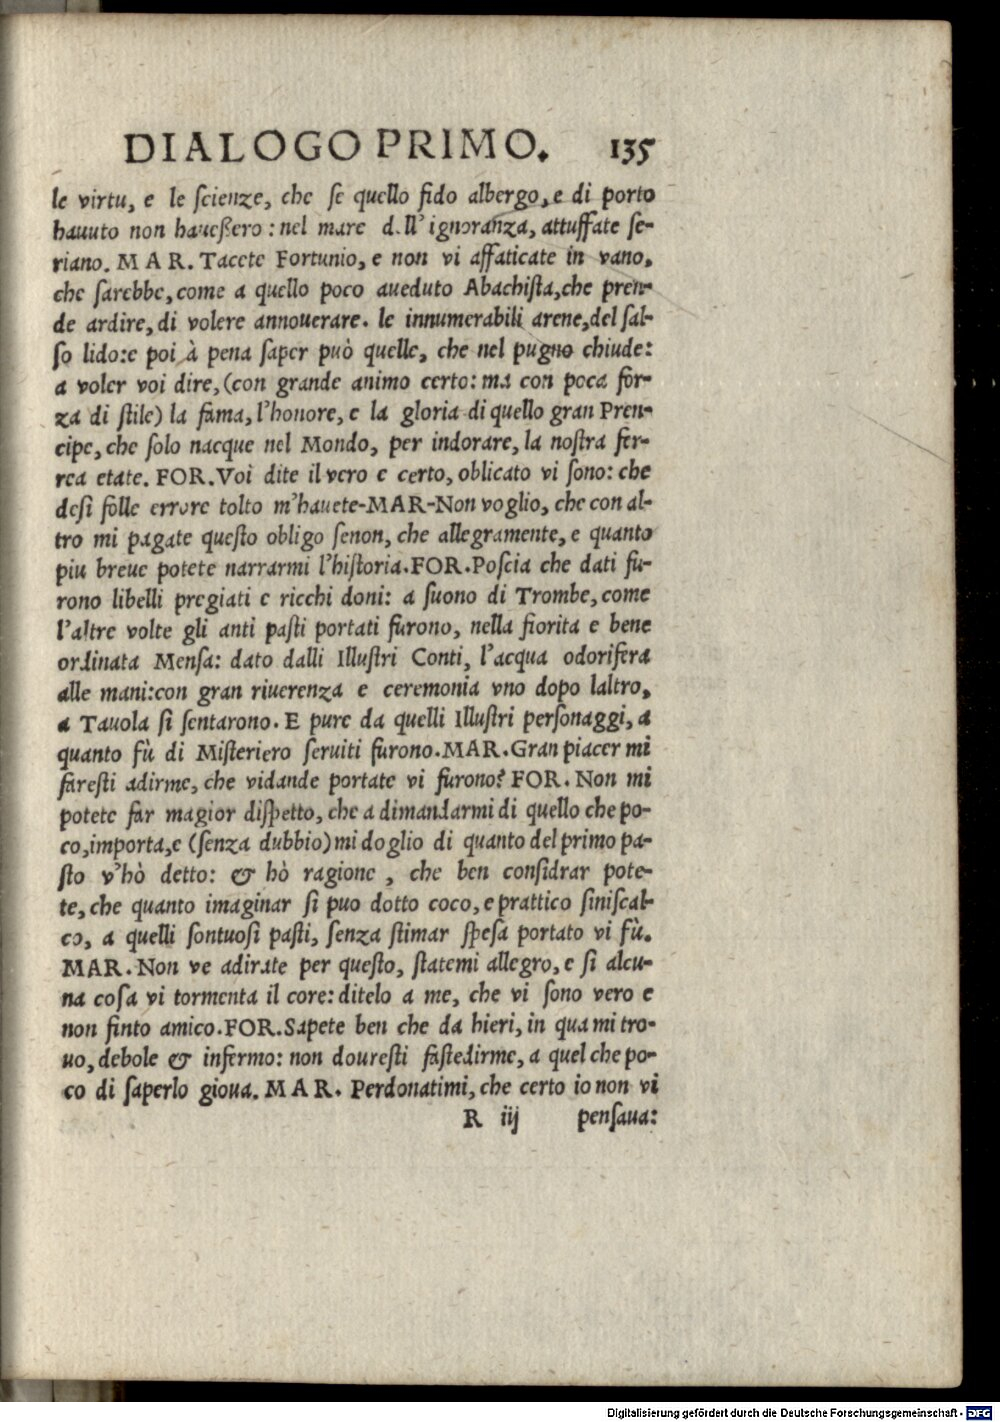 DIALOGO PRIMO. 135
le virtu, e le ſcienze, che ſe quello fido albergo, e di porto
hauuto non haueßero : nel mare d.ll' ignoranza, attuffate ſe-
riano. MAR. Tacete Fortunio, e non vi affaticate in vano,
che ſarebbe, come a quello poco aueduto Abachiſta, che pren-
de ardire, di volere annouerare. le innumerabili arene, del ſal-
ſo lido: e poi à pena ſaper può quelle, che nel pugno chiude:
a voler voi dire, (con grande animo certo: ma con poca for-
za di ſtile) la fama, l'honore, e la gloria di quello gran Pren-
cipe, che ſolo nacque nel Mondo, per indorare, la noſtra fer-
rea etate. FOR. Voi dite il vero e certo, oblicato vi ſono: che
deſi folle errore tolto m'hauete-MAR-Non voglio, che con al-
tro mi pagate queſto obligo ſenon, che allegramente, e quanto
piu breue potete narrarmi l'hiſtoria. FOR. Poſcia che dati fu-
rono libelli pregiati e ricchi doni: a ſuono di Trombe, come
l'altre volte gli anti paſti portati furono, nella fiorita e bene
ordinata Menſa: dato dalli Illuſtri Conti, l'acqua odorifera
alle mani: con gran riuerenza e ceremonia vno dopo laltro,
a Tauola ſi ſentarono. E pure da quelli Illuſtri perſonaggi, a
quanto fù di Miſteriero ſeruiti furono. MAR. Gran piacer mi
fareſti adirme, che vidande portate vi furono? FOR. Non mi
potete far magior diſpetto, che a dimandarmi di quello che po-
co, importa, e (ſenza dubbio) mi doglio di quanto del primo pa-
ſto v'hò detto: & hò ragione, che ben conſidrar pote-
te, che quanto imaginar ſi puo dotto coco, e prattico ſiniſcal-
co, a quelli ſontuoſi paſti, ſenza ſtimar ſpeſa portato vi fù.
MAR. Non ve adirate per queſto, ſtatemi allegro, e ſi alcu-
na coſa vi tormenta il core: ditelo a me, che vi ſono vero e
non finto amico. FOR. Sapete ben che da hieri, in qua mi tro-
uo, debole & infermo: non doureſti faſtedirme, a quel che po-
co di ſaperlo gioua. MAR. Perdonatimi, che certo io non vi
R iij penſaua:
Digitalisierung gefördert durch die Deutsche Forschungsgemeinschaft - DFG